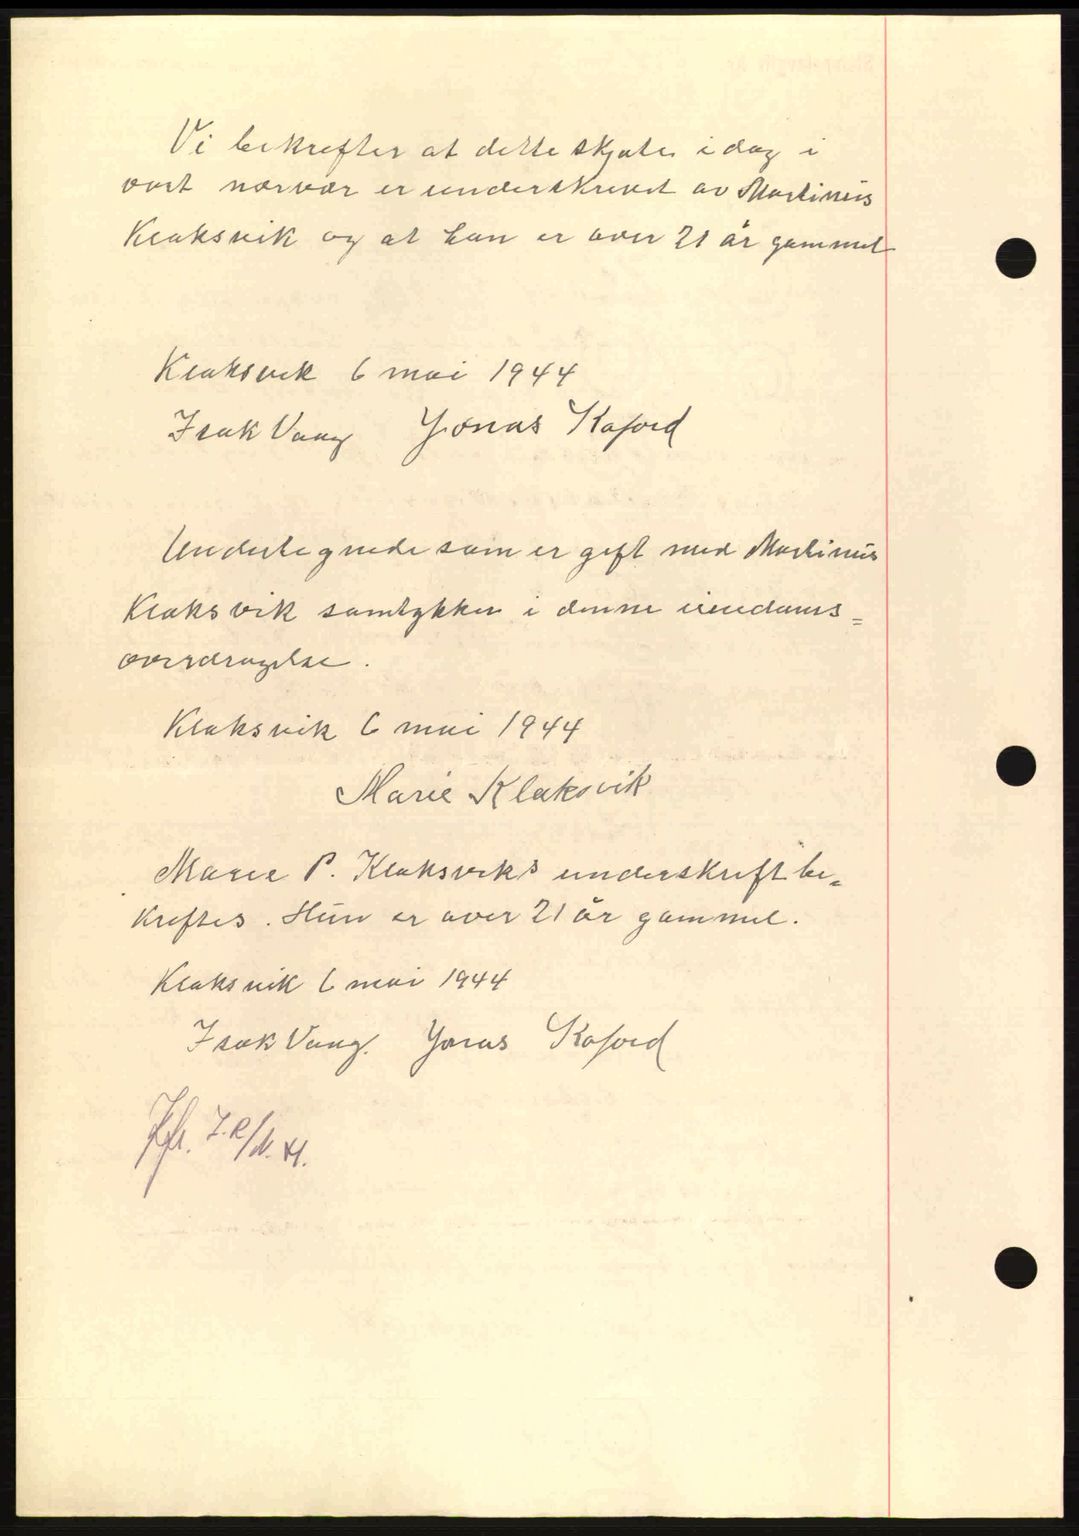 Vi bekrefter at dette skjøte idag i
vort nærvær er underskrevet av Martinus
Klaksvik og at han er over 21 år gammel
Klaksvik 6 mai 1944
Isak Vaag Jonas Kofoed
Undertegnede som er gift med Martinus
Klaksvik samtykker i denne eiendoms=
overdragelse.
Klaksvik 6 mai 1944
Marie Klaksvik
Marie P. Klaksviks underskrift be=
kreftes. Hun er over 21 år gammel.
Klaksvik 6 mai 1944
Isak Vaag. Jonas Kofoed